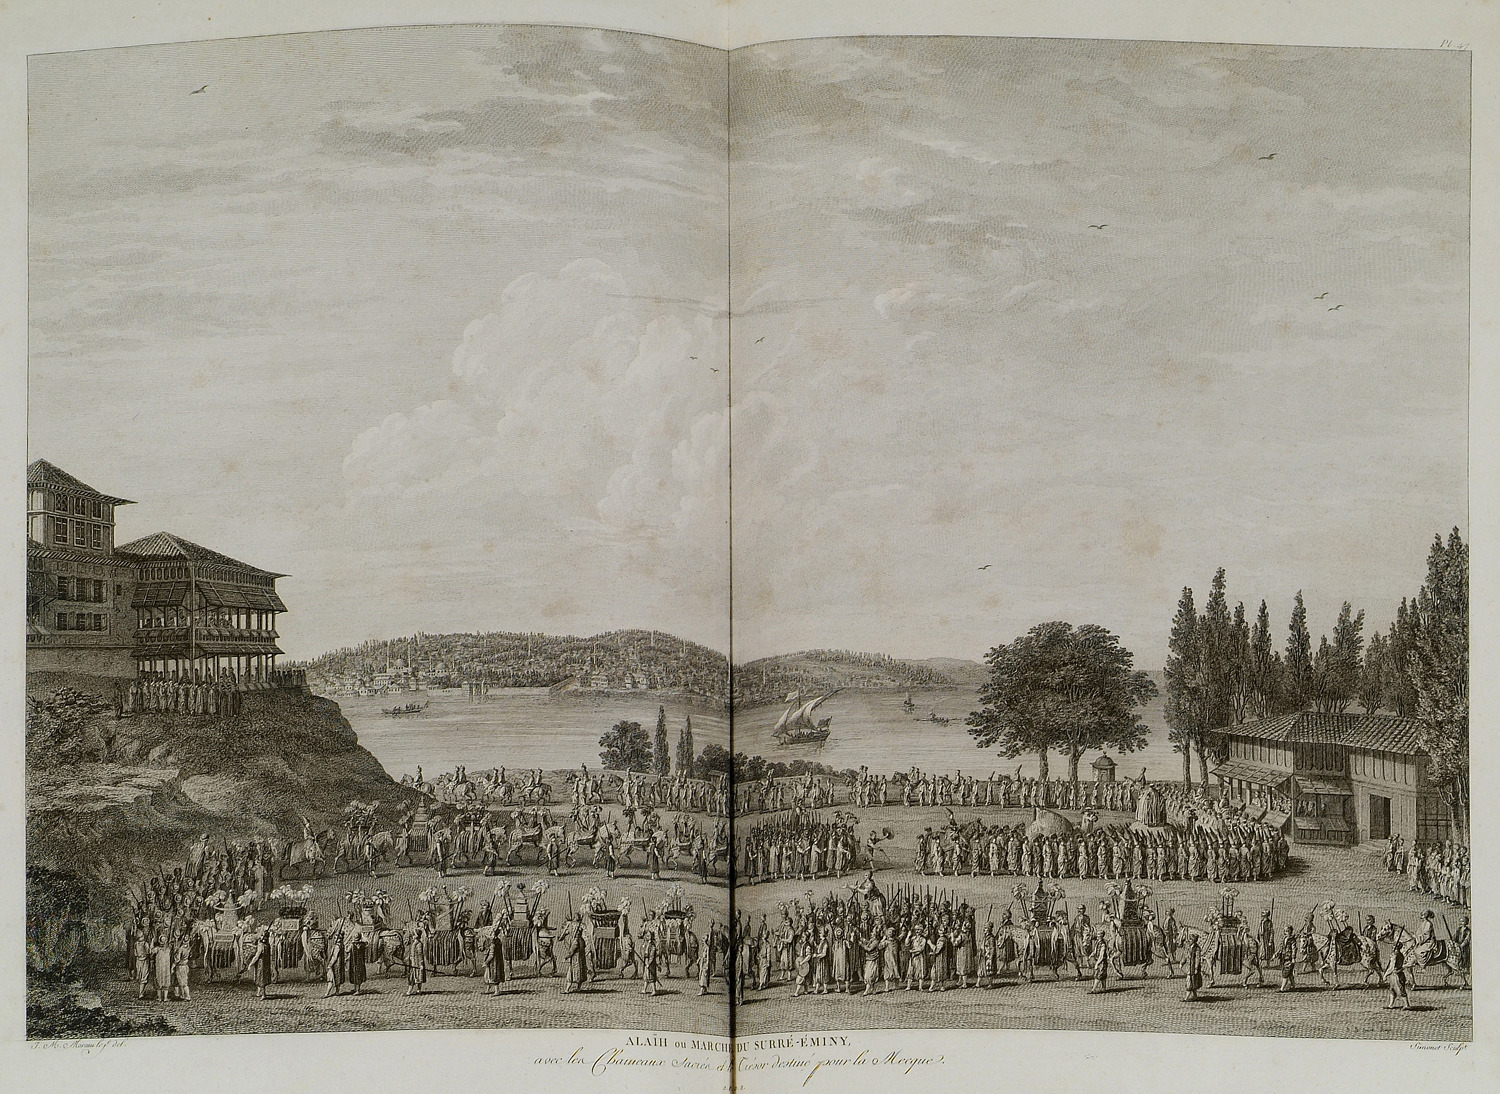 Pl. 47
J. M. Moreau le je. del.
Simonet Sculpt.
ALAÏH ou MARCHE DU SURRÉ-ÉMINY,
avec les Chameaux Sacrés et le Trésor destiné pour la Mecque.